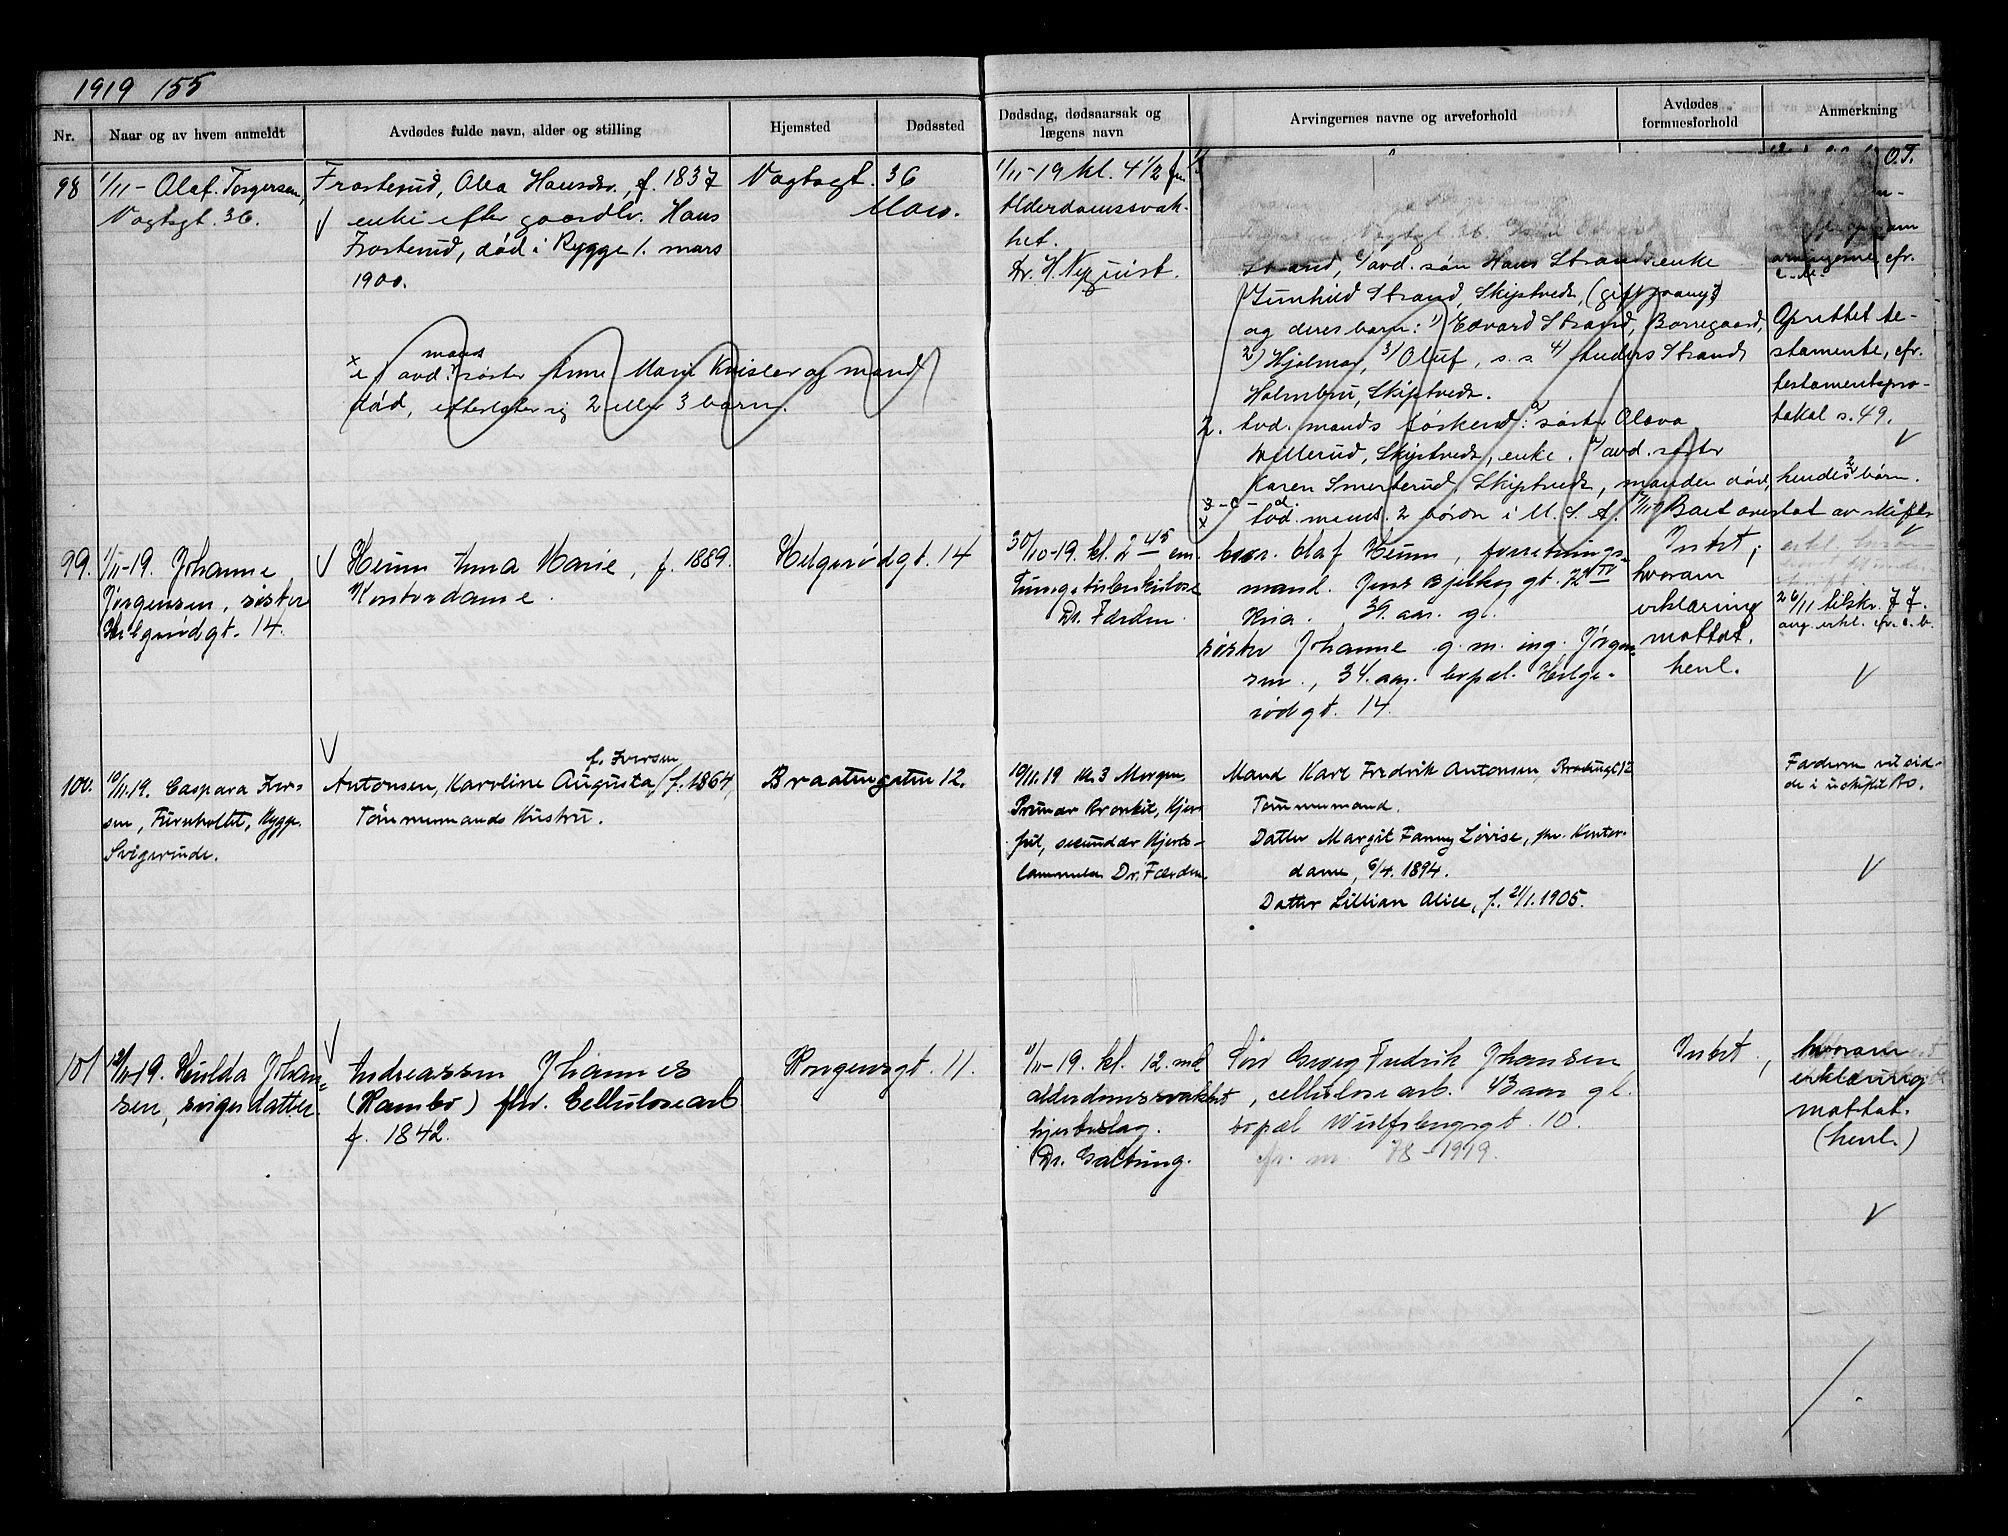 1919 155
Nr.
Naar og av hvem anmeldt
Avdødes fulde navn, alder og stilling
Hjemsted
Dødssted
Dødsdag, dødsaarsak og
lægens navn
Arvingernes navne og arveforhold
Avdødes
formuesforhold
Anmerkning
98
1/11- Olaf Torgersen,
Vogtsgt. 36.
Frosterud, Olea Hansdr., f. 1837
enke efter gaardbr. Hans
Frosterud, død i Rygge 1. mars
1900.
mands
avd. søster Anne Marie Kvisler og mand
død, efterlater sig 2 eller 3 barn.
Vogtsgt. 36
Moss.
1/11-19 kl. 4 1/2 fm.
Alderdomssvak-
het.
Dr. H. Nyquist.
Strand, avd. søn Hans Strands enke
Gunhild Strand, Skiptvedt, (gift paany?)
og deres barn: 1) Edvard Strand, Borregaard,
2) Hjalmar, 3) Oluf, s. s. 4) Anders Strand
Holmbru, Skiptvedt.
2. Avd. mands søskend: søster Olava
Willerud, Skiptvedt, enke. avd. søster
Karen Smerterud, Skiptvedt, manden død, hendes 2 børn.
avd. mands 2 brødre i U. S. A.
O.T.
arvingerne, cfr.
Oprettet te-
stamente, cfr.
testamentspro-
tokol s. 49.
Boet overtat av skifter
99.
1/11-19. Johanne
Jørgensen, søster
Helgerødgt. 14.
Heum Anna Marie, f. 1889.
Kontordame.
Helgerødgt. 14
30/10-19. kl. 2 45 em.
Lungetuberkulose
Dr. Færden.
bror. Olaf Heum, forretnings-
mand. Jens Bjelkes gt. 72 IV
Kria. 39. aar. gl.
søster Johanne g. m. ing. Jørgen-
sen., 34. aar. bopæl. Helge-
rødgt. 14.
Intet;
hvorom
erklæring
mottat.
henl.
26/11 tilskr. J. J.
ang. erkl. cfr. c. b.
100.
10/11.19. Caspara Iver-
sen, Furuholtet, Rygge.
Svigerinde.
f. Iversen
Antonsen, Karoline Augusta, f. 1864,
Tømmermands Hustru.
Braatengaten 12.
10/11.19 Kl. 3 Morgen.
Primær Bronkit, Hjert-
feil, secundær Hjerte-
lammelse Dr. Færden
Mand Karl Fredrik Antonsen Braatengt 12
Tømmermand.
Datter Margit Fanny Lovise, fhv. Kontor-
dame, 6/4. 1894.
Datter Lillian Alice, f. 21/1. 1905.
Faderen vil sid-
de i uskiftet Bo.
101
12/11-19. Hulda Johan-
sen, svigerdatter.
Andreassen Johannes
(Rambø) fhv. Cellulosearb
f. 1842.
Kongensgt. 11.
11/11-19. kl. 12. md.
alderdomssvakhet
hjerteslag.
Dr. Galtung.
Søn Georg Fredrik Johansen
, cellulosearb. 43 aar gl.
bopæl Wulfsbergsgt. 10.
cfr. nr. 78-1919.
Intet,
hvorom
erklæring
mottat.
(henl.)